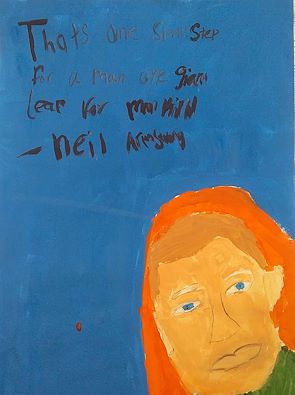 Thats one small Step
for a man one giant
leap for mankind
- neil Armstrong